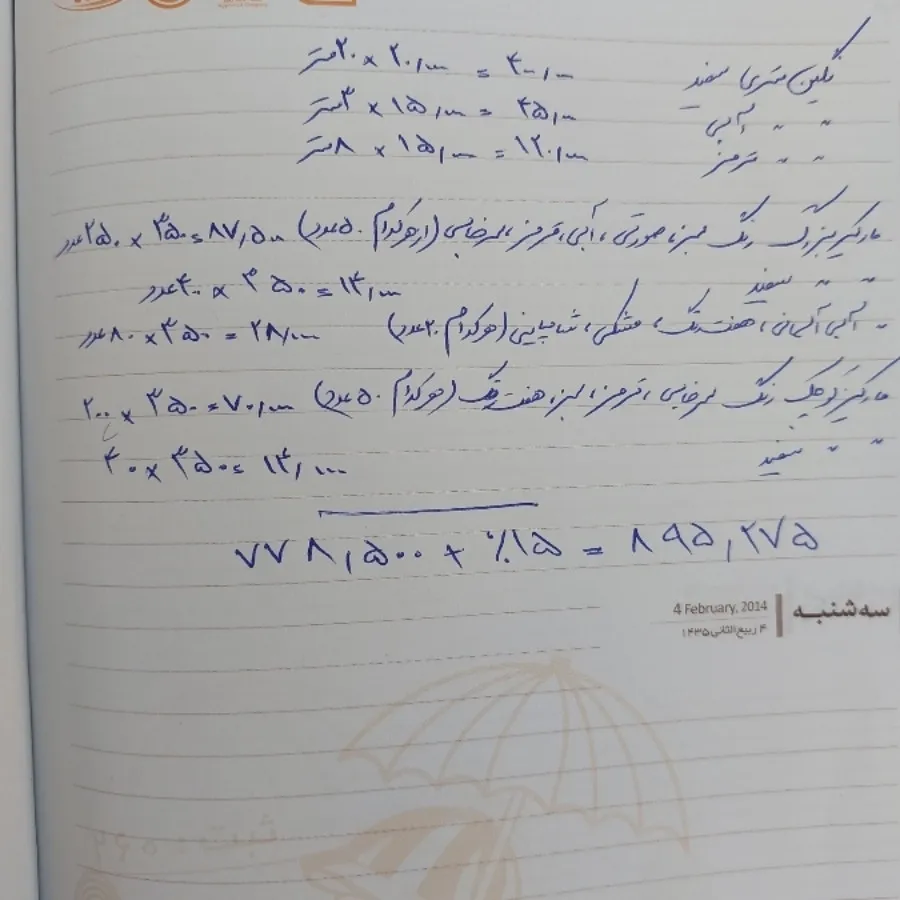 نگین متری سفید ۲۰متر × ۲۰,۰۰۰ = ۴۰۰,۰۰۰
〃 〃 آبی ۳متر × ۱۵,۰۰۰ = ۴۵,۰۰۰
〃 〃 قرمز ۸متر × ۱۵,۰۰۰ = ۱۲۰,۰۰۰
مارکیز بزرگ رنگ سبز، صورتی، آبی، قرمز، سرخابی (از هر کدام ۵۰ عدد) ۲۵۰عدد × ۳۵۰ = ۸۷,۵۰۰
〃 〃 سفید ۴۰عدد × ۳۵۰ = ۱۴,۰۰۰
〃 آبی آسمانی، هفت رنگ، مشکی، شامپاینی (هر کدام ۲۰ عدد) ۸۰عدد × ۳۵۰ = ۲۸,۰۰۰
مارکیز کوچک رنگ سرخابی، قرمز، سبز، هفت رنگ (هر کدام ۵۰ عدد) ۲۰۰ × ۳۵۰ = ۷۰,۰۰۰
〃 〃 سفید ۴۰ × ۳۵۰ = ۱۴,۰۰۰
۷۷۸,۵۰۰ + ٪۱۵ = ۸۹۵,۲۷۵
سه‌شنبه
4 February, 2014
۴ ربیع‌الثانی ۱۴۳۵